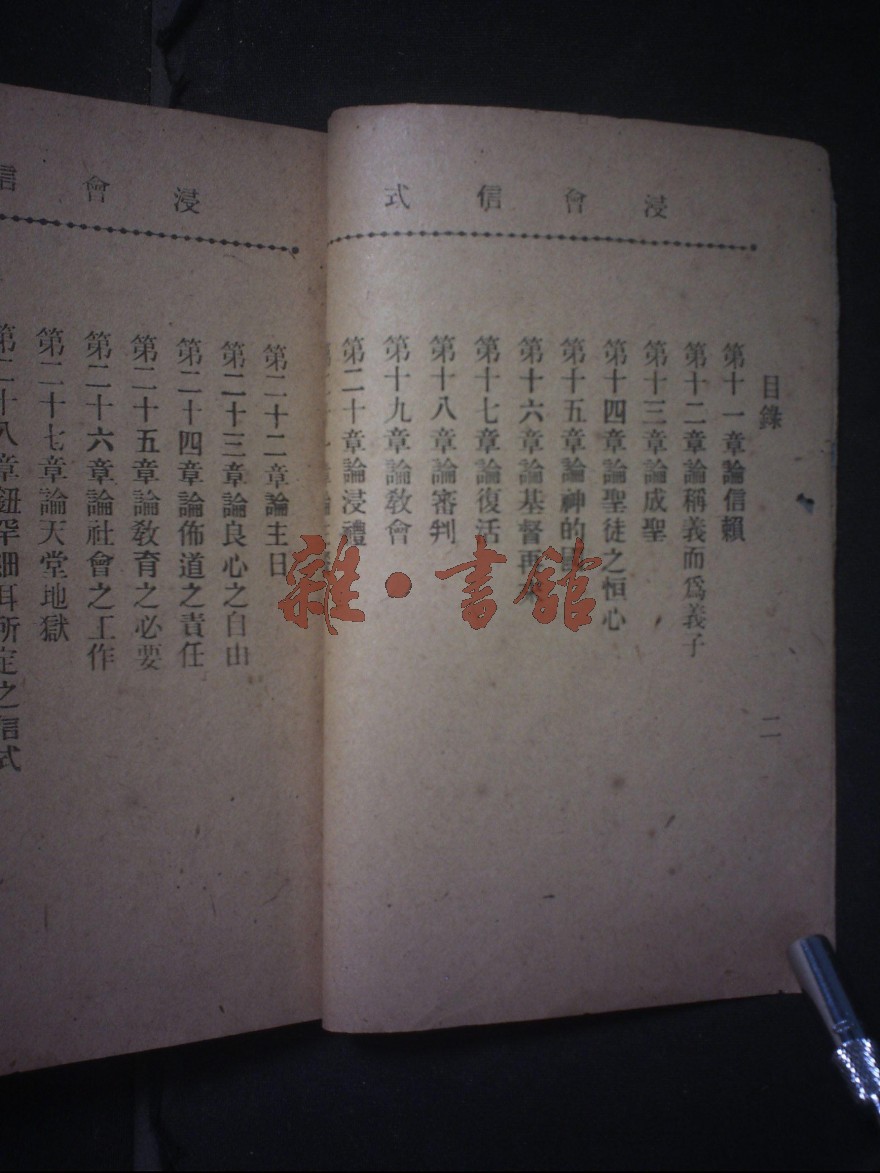 浸會信式
目錄
二
第十一章論信賴
第十二章論稱義而爲義子
第十三章論成聖
第十四章論聖徒之恒心
第十五章論神的國
第十六章論基督再來
第十七章論復活
第十八章論審判
第十九章論敎會
第二十章論浸禮
浸會信
第二十二章論主日
第二十三章論良心之自由
第二十四章論佈道之責任
第二十五章論敎育之必要
第二十六章論社會之工作
第二十七章論天堂地獄
第二十八章鈕罕細耳所定之信式
雜·書館